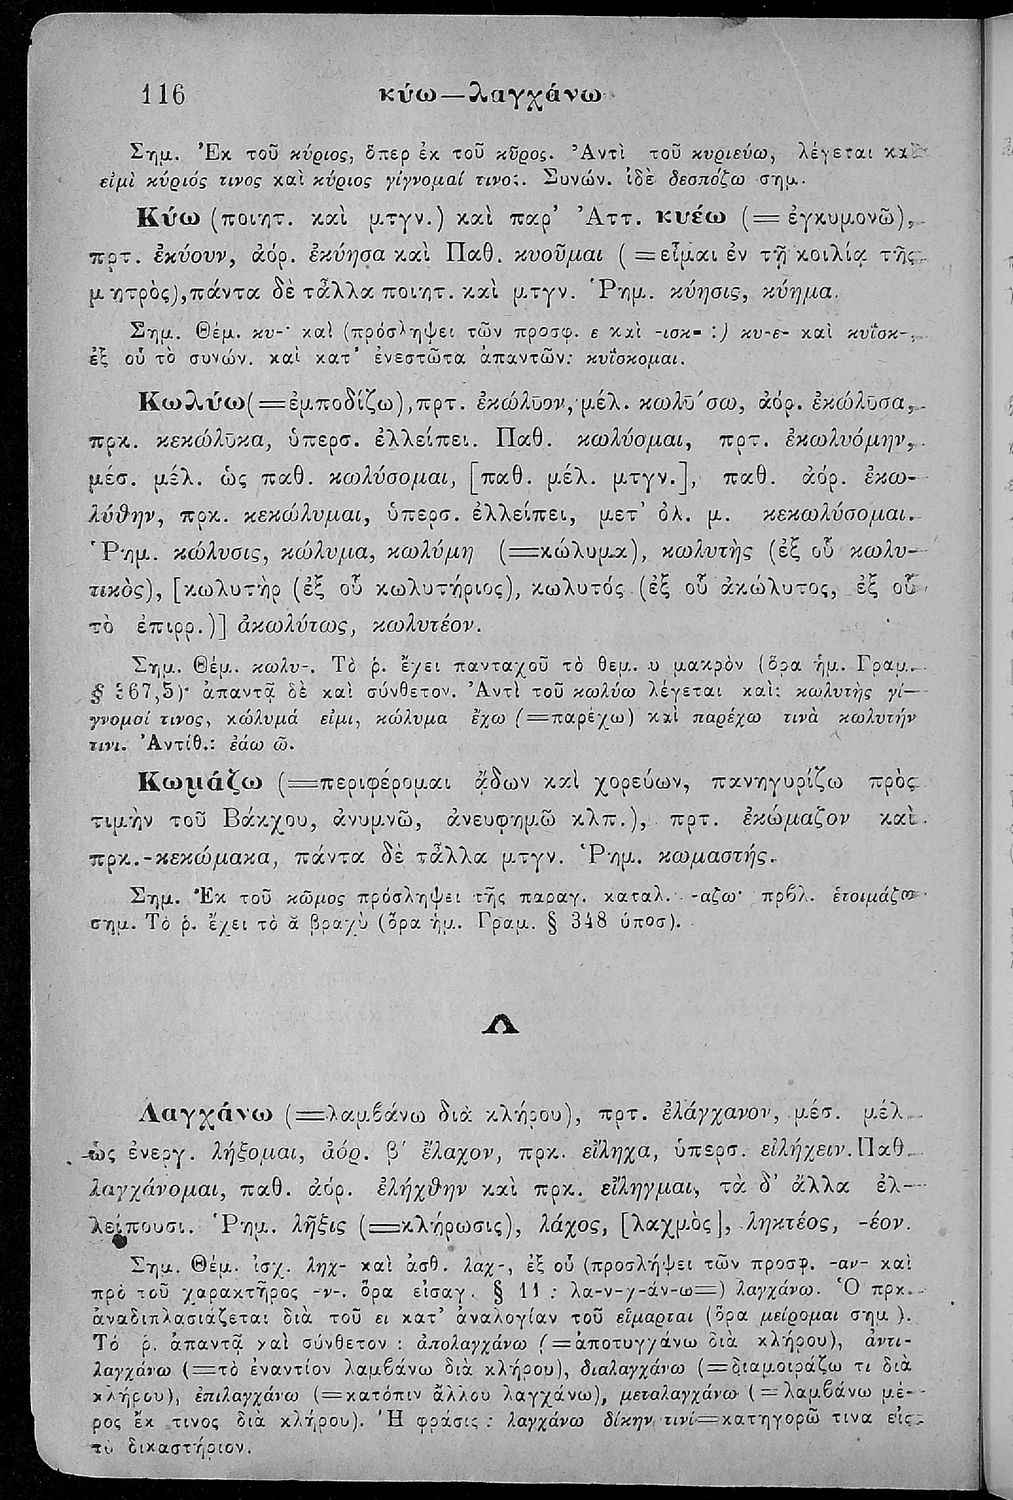 116 κύω—λαγχάνω
Σημ. Ἐκ τοῦ κύριος, ὅπερ ἐκ τοῦ κῦρος. Ἀντὶ τοῦ κυριεύω, λέγεται καὶ
εἰμὶ κύριός τινος καὶ κύριος γίγνομαί τινος. Συνών. ἰδὲ δεσπόζω σημ.
Κύω (ποιητ. καὶ μτγν.) καὶ παρ' Ἀττ. κυέω (=ἐγκυμονῶ),
πρτ. ἐκύουν, ἀόρ. ἐκύησα καὶ Παθ. κυοῦμαι (=εἶμαι ἐν τῇ κοιλίᾳ τῆς
μητρὸς), πάντα δὲ τἆλλα ποιητ. καὶ μτγν. Ῥημ. κύησις, κύημα.
Σημ. Θέμ. κυ-· καὶ (πρόσληψει τῶν προσφ. ε καὶ -ισκ- :) κυ-ε- καὶ κυΐσκ-,
ἐξ οὗ τὸ συνών. καὶ κατ' ἐνεστῶτα ἀπαντῶν: κυΐσκομαι.
Κωλύω(=ἐμποδίζω), πρτ. ἐκώλῡον, μέλ. κωλῡ́σω, ἀόρ. ἐκώλῡσα,
πρκ. κεκώλῡκα, ὑπερσ. ἐλλείπει. Παθ. κωλύομαι, πρτ. ἐκωλυόμην,
μέσ. μέλ. ὡς παθ. κωλύσομαι, [παθ. μέλ. μτγν.], παθ. ἀόρ. ἐκω-
λύθην, πρκ. κεκώλυμαι, ὑπερσ. ἐλλείπει, μετ' ὀλ. μ. κεκωλύσομαι.
Ῥημ. κώλυσις, κώλυμα, κωλύμη (=κώλυμα), κωλυτὴς (ἐξ οὗ κωλυ-
τικὸς), [κωλυτὴρ (ἐξ οὗ κωλυτήριος), κωλυτός (ἐξ οὗ ἀκώλυτος, ἐξ οὗ
τὸ ἐπιρρ.)] ἀκωλύτως, κωλυτέον.
Σημ. Θέμ. κωλυ-. Τὸ ῥ. ἔχει πανταχοῦ τὸ θεμ. υ μακρὸν (ὅρα ἡμ. Γραμ.
§ 367,5)· ἀπαντᾷ δὲ καὶ σύνθετον. Ἀντὶ τοῦ κωλύω λέγεται καὶ: κωλυτὴς γί-
γνομαί τινος, κώλυμά εἰμι, κώλυμα ἔχω (=παρέχω) καὶ παρέχω τινὰ κωλυτήν
τινι. Ἀντίθ.: ἐάω ῶ.
Κωμάζω (=περιφέρομαι ᾄδων καὶ χορεύων, πανηγυρίζω πρὸς
τιμὴν τοῦ Βάκχου, ἀνυμνῶ, ἀνευφημῶ κλπ.), πρτ. ἐκώμαζον καὶ
πρκ. κεκώμακα, πάντα δὲ τἆλλα μτγν. Ῥημ. κωμαστής.
Σημ. Ἐκ τοῦ κῶμος πρόσληψει τῆς παραγ. καταλ. -αζω· πρβλ. ἑτοιμάζω
σημ. Τὸ ῥ. ἔχει τὸ ᾰ βραχὺ (ὅρα ἡμ. Γραμ. § 348 ὑποσ).
Λ
Λαγχάνω (=λαμβάνω διὰ κλήρου), πρτ. ἐλάγχανον, μέσ. μέλ.
ὡς ἐνεργ. λήξομαι, ἀόρ. β' ἔλαχον, πρκ. εἴληχα, ὑπερσ. εἰλήχειν. Παθ.
λαγχάνομαι, παθ. ἀόρ. ἐλήχθην καὶ πρκ. εἴληγμαι, τὰ δ' ἄλλα ἐλ-
λείπουσι. Ῥημ. λῆξις (=κλήρωσις), λάχος, [λαχμὸς], ληκτέος, -έον.
Σημ. Θέμ. ἰσχ. ληχ- καὶ ἀσθ. λαχ-, ἐξ οὗ (προσλήψει τῶν προσφ. -αν- καὶ
πρὸ τοῦ χαρακτῆρος -ν-. ὅρα εἰσαγ. § 11 : λα-ν-γ-άν-ω=) λαγχάνω. Ὁ πρκ.
ἀναδιπλασιάζεται διὰ τοῦ ει κατ' ἀναλογίαν τοῦ εἵμαρται (ὅρα μείρομαι σημ.).
Τό ῥ. ἀπαντᾷ καὶ σύνθετον : ἀπολαγχάνω (=ἀποτυγχάνω διὰ κλήρου), ἀντι-
λαγχάνω (=τὸ ἐναντίον λαμβάνω διὰ κλήρου), διαλαγχάνω (=διαμοιράζω τι διὰ
κλήρου), ἐπιλαγχάνω (=κατόπιν ἄλλου λαγχάνω), μεταλαγχάνω (=λαμβάνω μέ-
ρος ἔκ τινος διὰ κλήρου). Ἡ φράσις : λαγχάνω δίκην τινί=κατηγορῶ τινα εἰς
τὸ δικαστήριον.